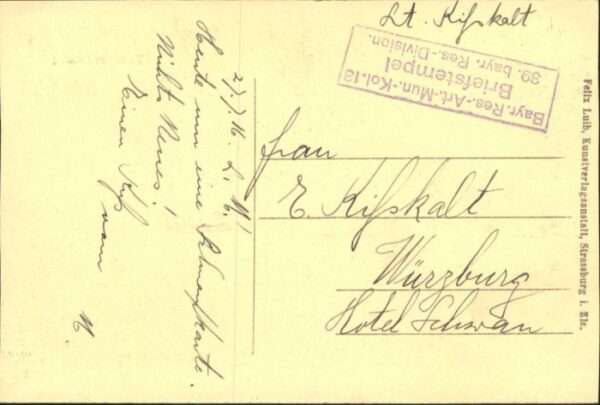 Lt. Kißkalt
Bayr. Res.-Art.-Mun.-Kol. 13
Briefstempel
39. bayr. Res.-Division.
Frau
E. Kißkalt
Würzburg
Hotel Schwan
27.7.16. L. M!
Heute nur eine Schnapskarte.
Nichts Neues!
Einen Kuß
vom
M.
Felix Luib, Kunstverlagsanstalt, Strassburg i. Els.